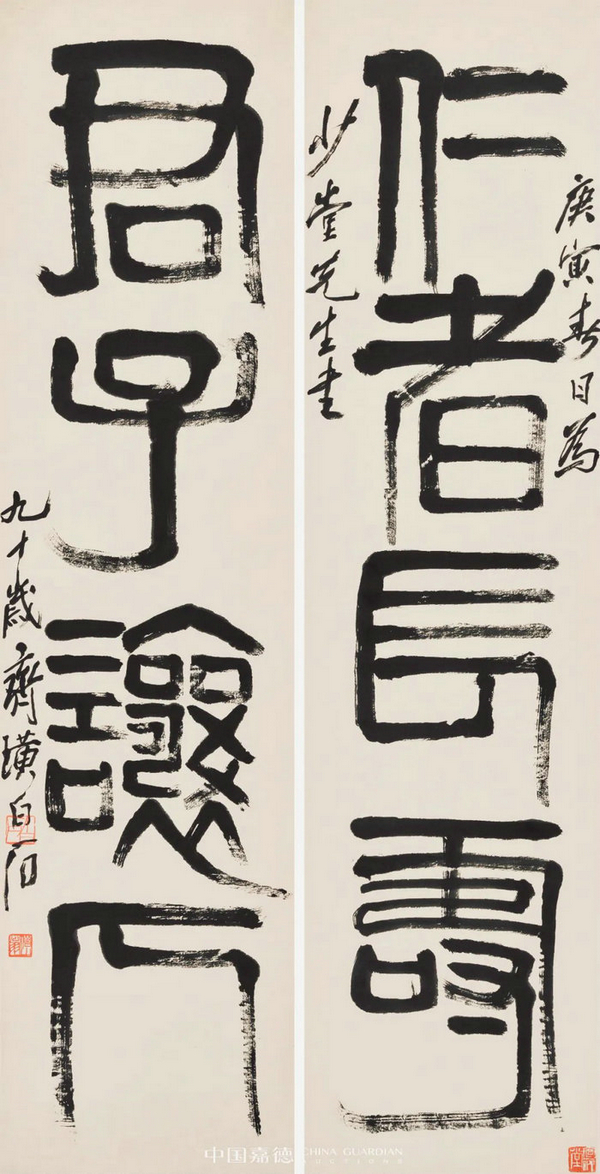 庚寅春日為
仁者長壽
少堂先生書
君子讓人
九十歲齊璜白石
中国嘉德 CHINA GUARDIAN